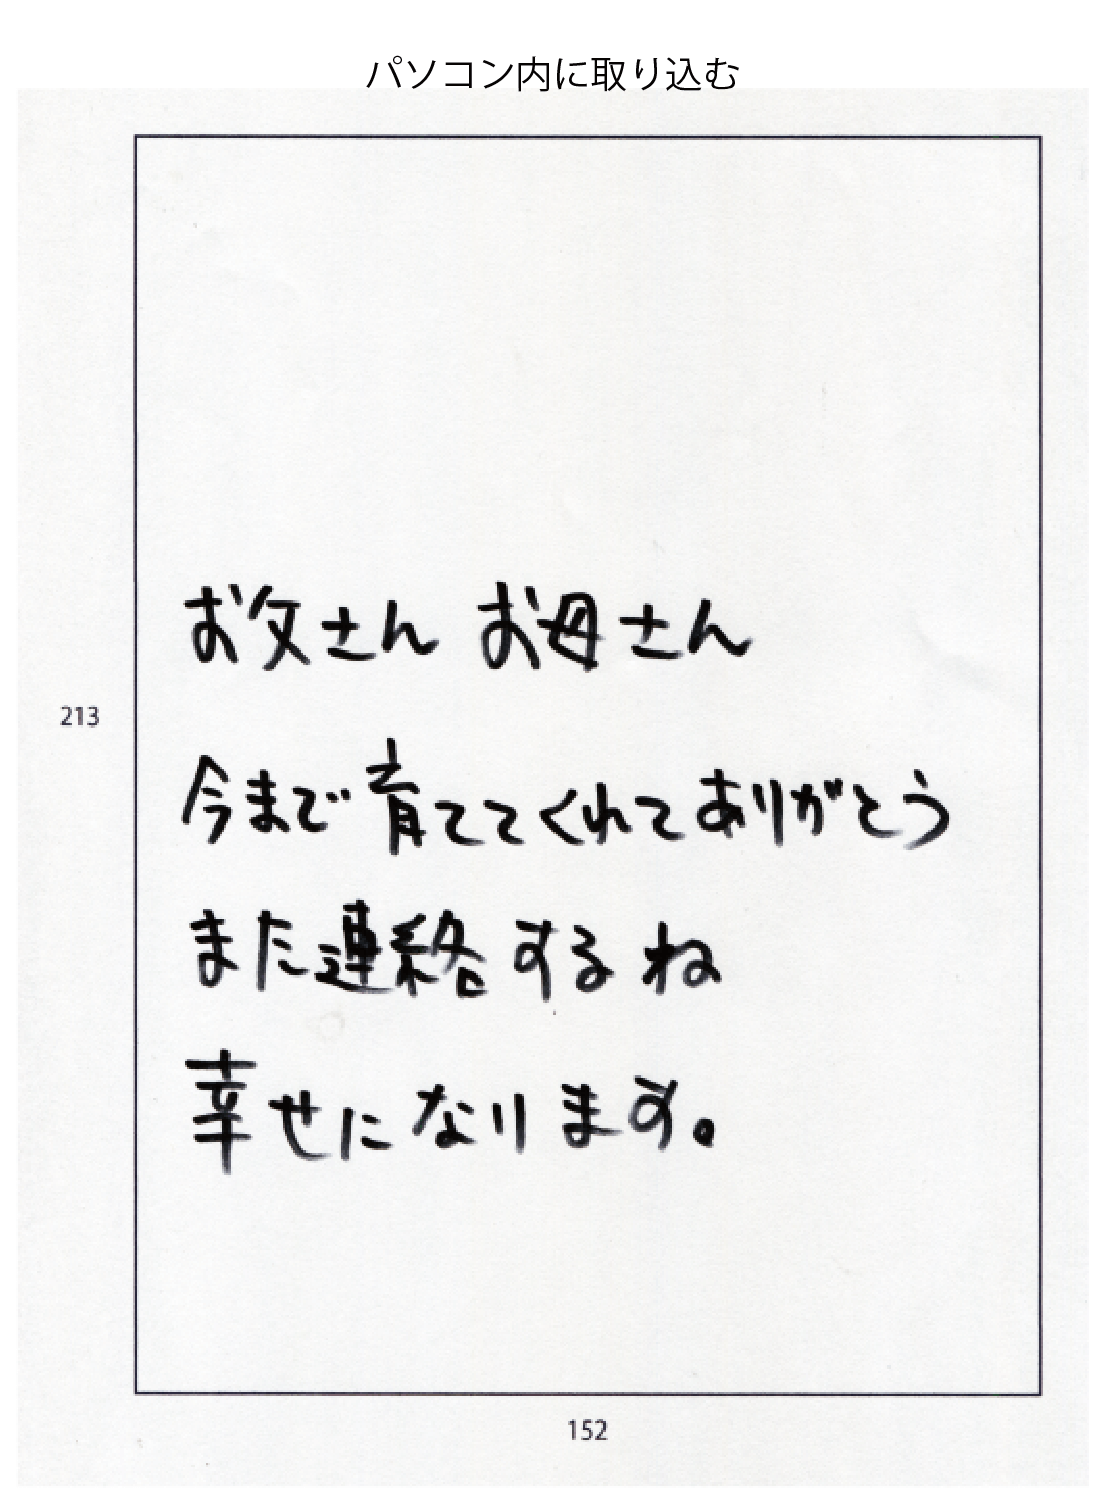 パソコン内に取り込む
お父さん お母さん
213
今まで育ててくれてありがとう
また連絡するね
幸せになります。
152